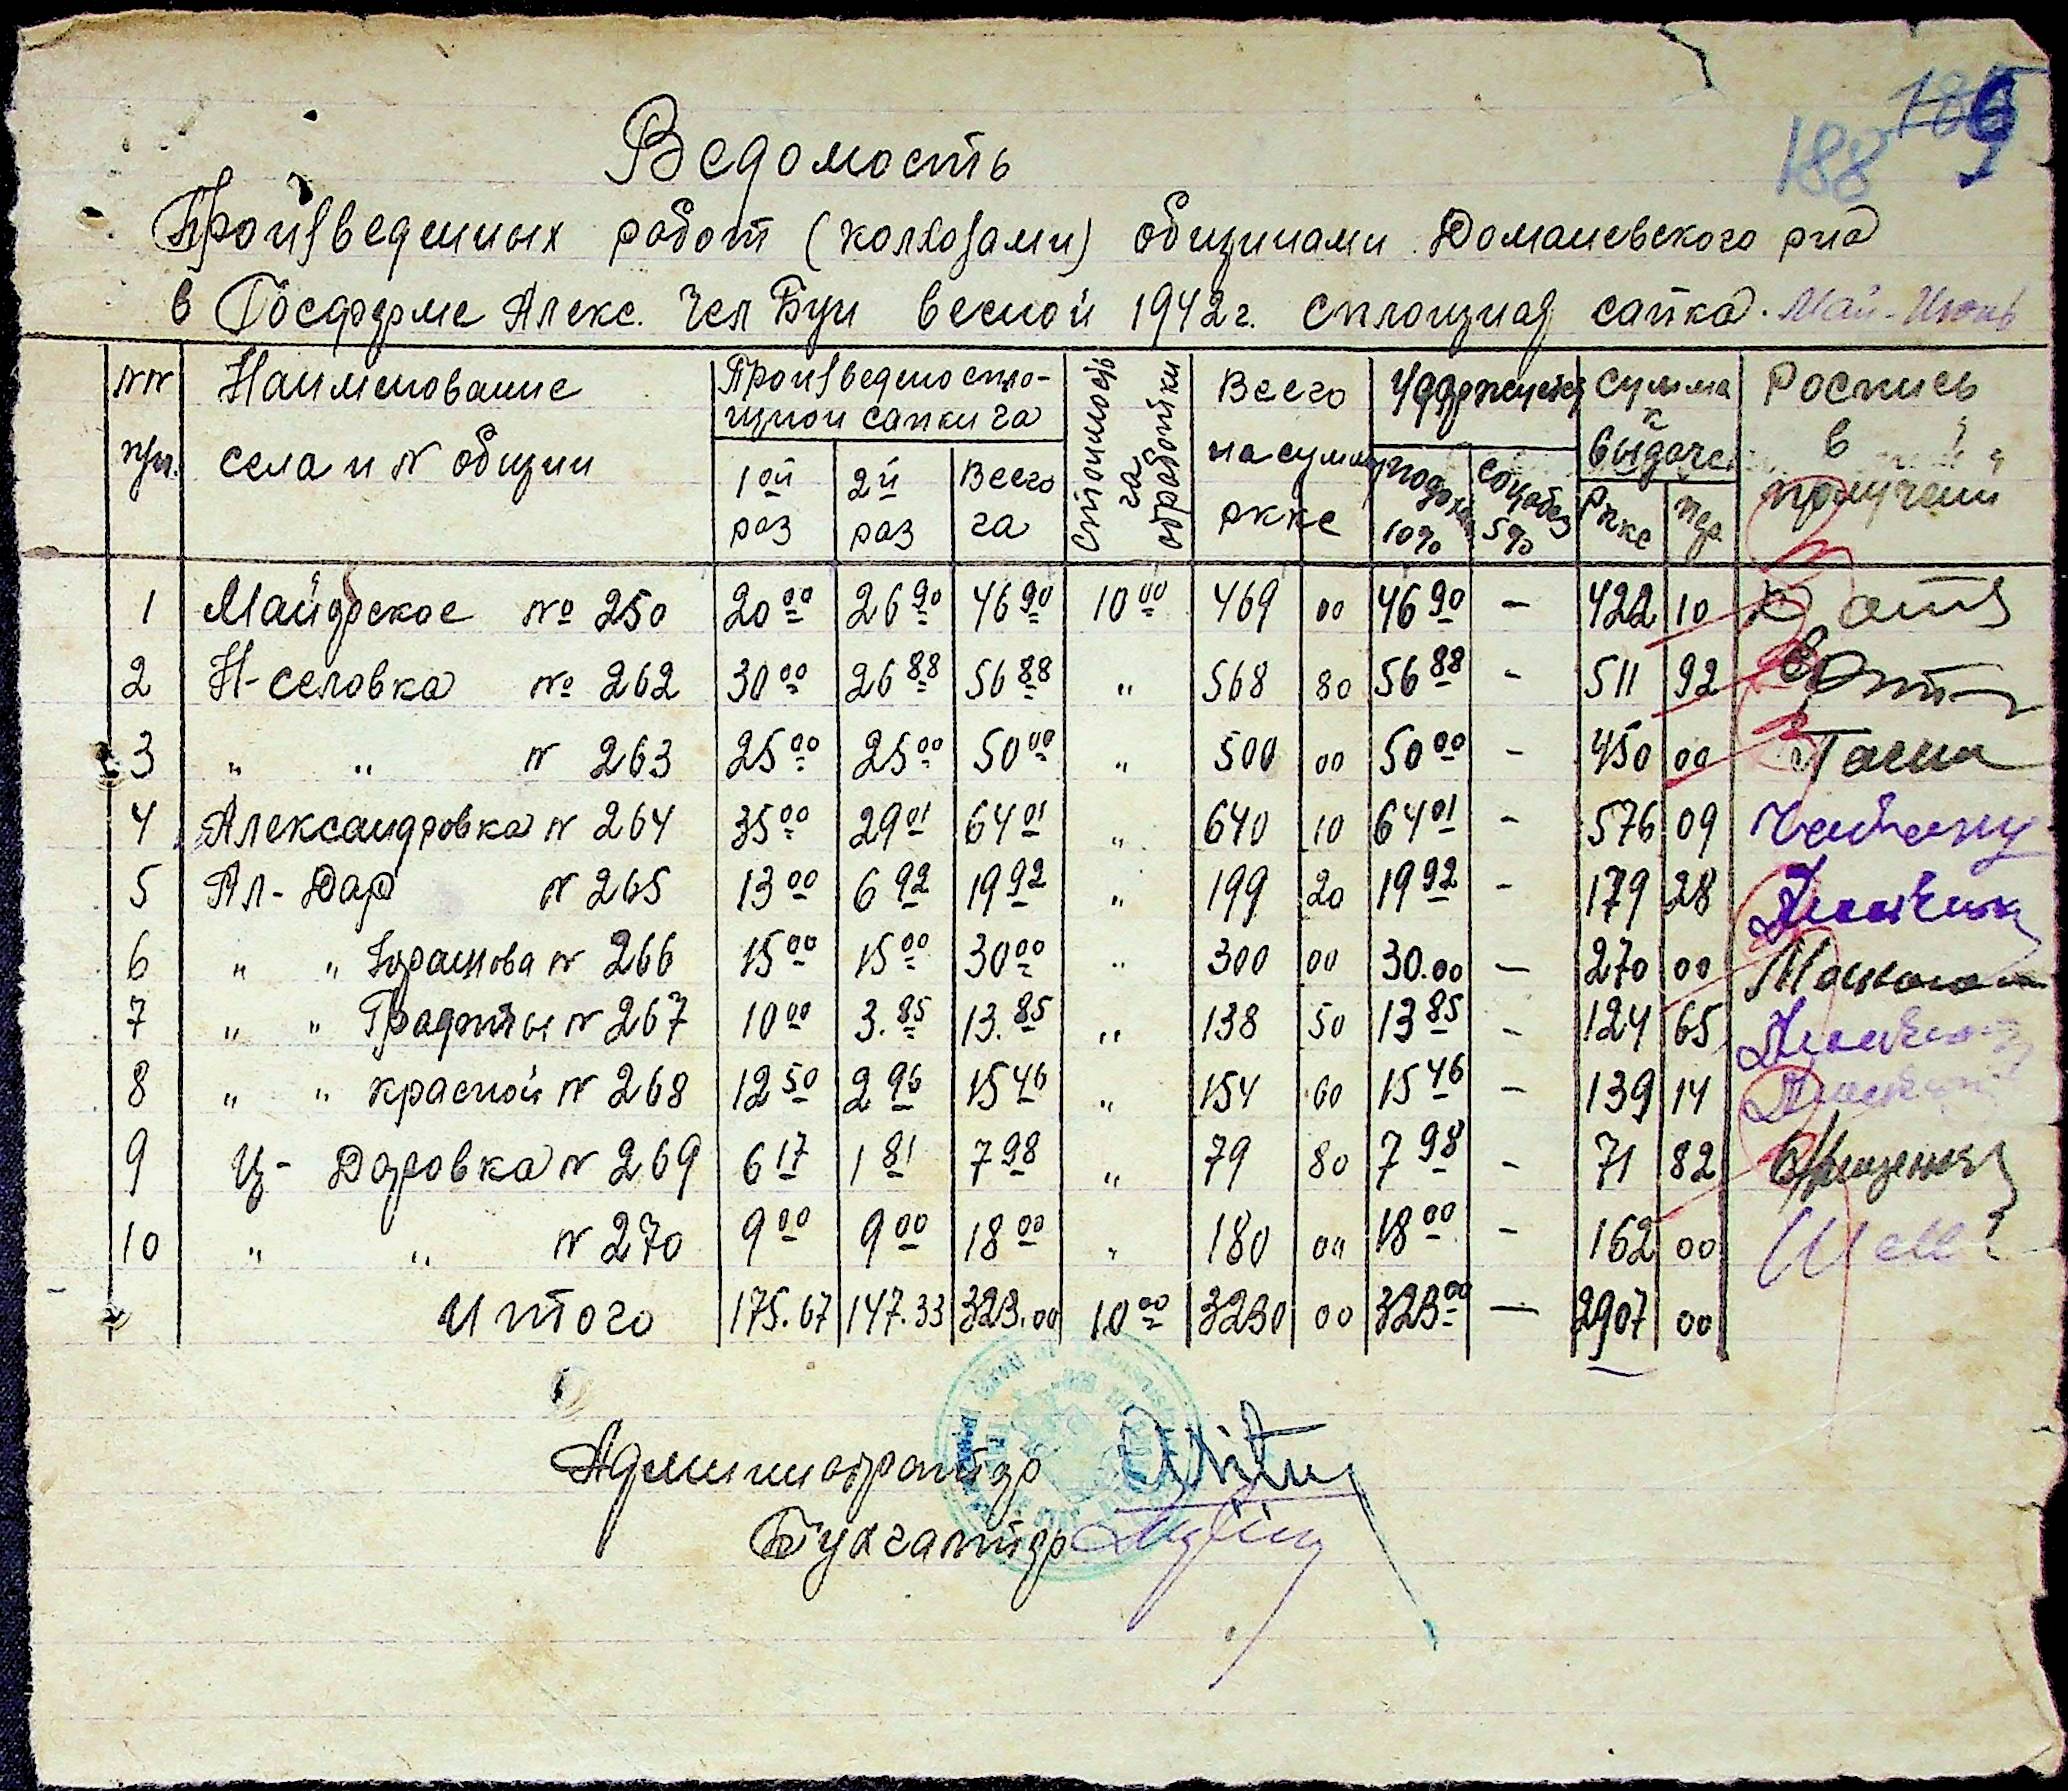 188
Ведомость
Произведенных работ (колхозами) общинами Доманевского р-на
в Госферме Алекс. Чел Бун весной 1942 г. сплошная сапка. Май-Июнь
NN п/п. Наименование села и N общин Произведено сплошной сапки га 1ой раз 2й раз Всего га Стоимость за 1 га обработки Всего на сумму ркке Удержив подох 10% соцобез 5% Сумма к выдаче ркке пф. Роспись в получении
1 Майорское № 250 20 00 26 90 46 90 10 00 469 00 46 90 – 422 10
2 Н-селовка № 262 30 00 26 88 56 88 " 568 80 56 88 – 511 92
3 " " N 263 25 00 25 00 50 00 " 500 00 50 00 – 450 00
4 Александровка N 264 35 00 29 01 64 01 " 640 10 64 01 – 576 09
5 Ал-Дар N 265 13 00 6 92 19 92 " 199 20 19 92 – 179 28
6 " " N 266 15 00 15 00 30 00 " 300 00 30.00 – 270 00
7 " " N 267 10 00 3.85 13.85 " 138 50 13 85 – 124 65
8 " " Красной N 268 12 50 2 96 15 46 " 154 60 15 46 – 139 14
9 Ц-Даровка N 269 6 17 1 81 7 98 " 79 80 7 98 – 71 82
10 " " N 270 9 00 9 00 18 00 " 180 00 18 00 – 162 00
Итого 175.67 147.33 323.00 10 00 3230 00 323 00 – 2907 00
Администратор
Бухгалтер